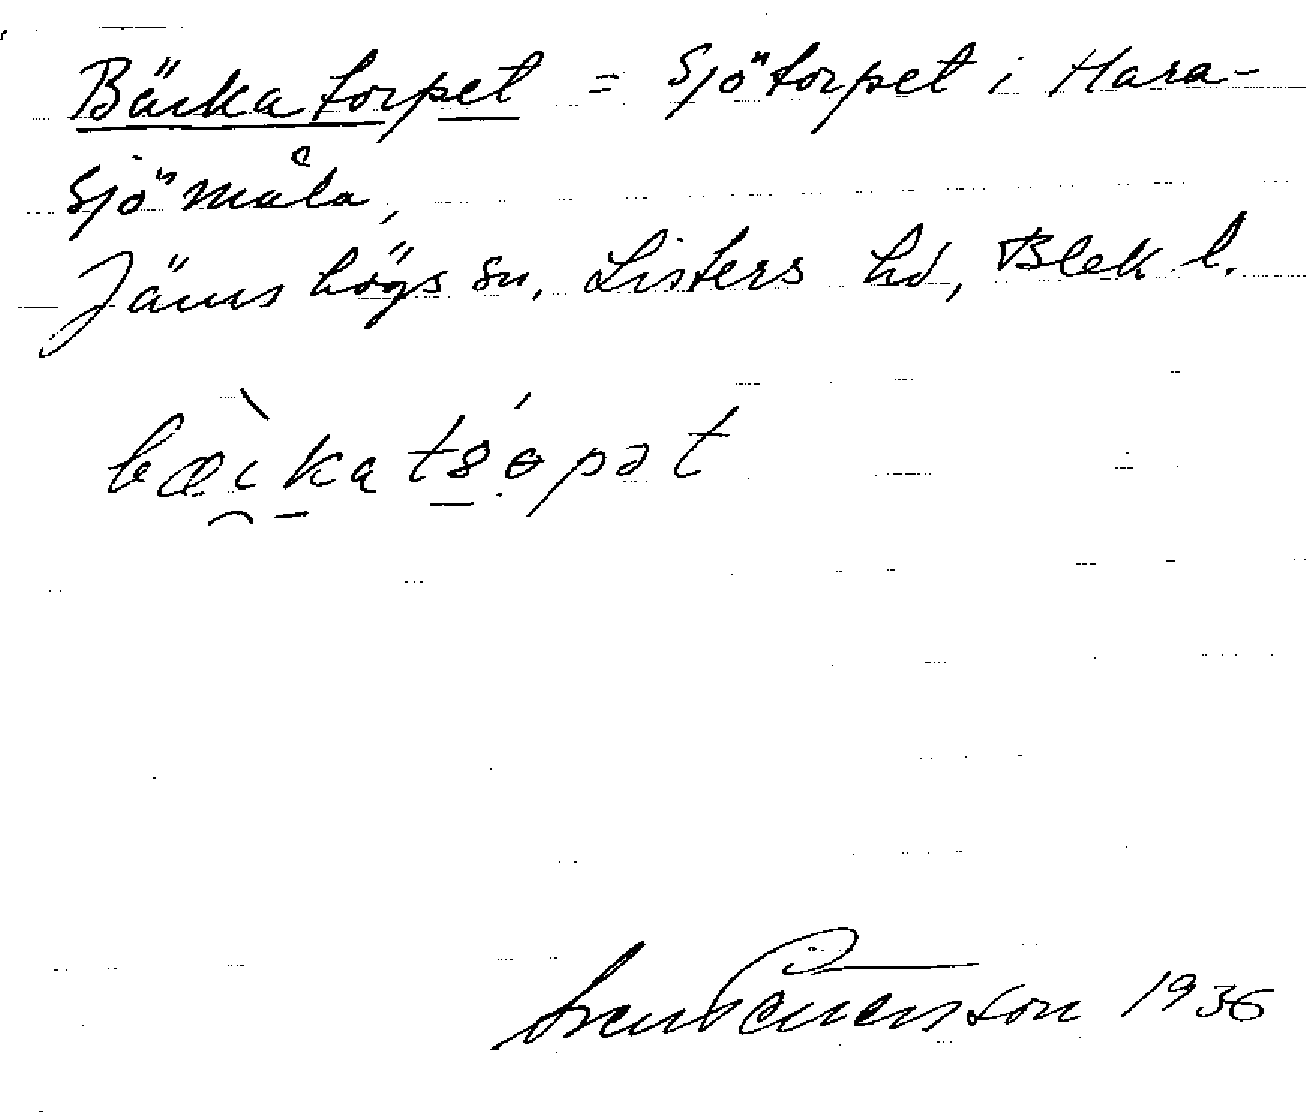 Bäckatorpet = Sjötorpet i Hara-
sjömåla,
Jämshögs sn. Listers hd, Blek l.
1936